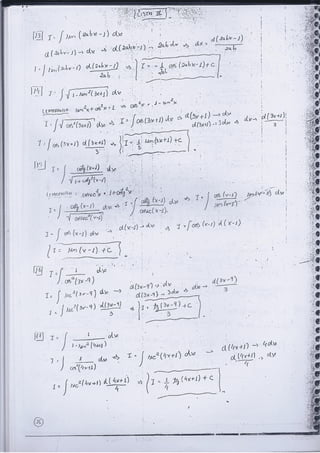 I = ∫ sen(2abx-1) dx
d(2abx-1) → dx ⇒ d(2abx-1) → 2ab dx ⇒ dx = d(2abx-1)/2ab
I = ∫ sen(2abx-1) d(2abx-1)/2ab ⇒ I = -1/2ab cos(2abx-1)+c
I = ∫ √1-sen²(3x+1) dx
sen²x+cos²x=1 ⇒ cos²x = 1-sen²x
I = ∫ √cos²(3x+1) dx ⇒ I = ∫ cos(3x+1) dx ⇒ d(3x+1) → dx
d(3x+1) → 3dx ⇒ dx = d(3x+1)/3
I = ∫ cos(3x+1) d(3x+1)/3 ⇒ I = 1/3 sen(3x+1)+c
I = ∫ cotg(x-1)/√1+cotg²(x-1) dx
cosec²x = 1+cotg²x
I = ∫ cotg(x-1)/√cosec²(x-1) dx ⇒ I = ∫ cotg(x-1)/cosec(x-1) dx ⇒ I = ∫ cos(x-1)/sen(x-1) · sen(x-1) dx
I = ∫ cos(x-1) dx → d(x-1) → dx ⇒ I = ∫ cos(x-1) d(x-1)
I = sen(x-1)+c
I = ∫ 1/cos²(3x-9) dx
I = ∫ sec²(3x-9) dx → d(3x-9) → dx
d(3x-9) → 3dx ⇒ dx → d(3x-9)/3
I = ∫ sec²(3x-9) d(3x-9)/3 ⇒ I = 1/3 tg(3x-9)+c
I = ∫ 1/1-sen²(4x+1) dx
I = ∫ 1/cos²(4x+1) dx ⇒ I = ∫ sec²(4x+1) dx → d(4x+1) → 4dx
d(4x+1)/4 → dx
I = ∫ sec²(4x+1) d(4x+1)/4 ⇒ I = 1/4 tg(4x+1)+c